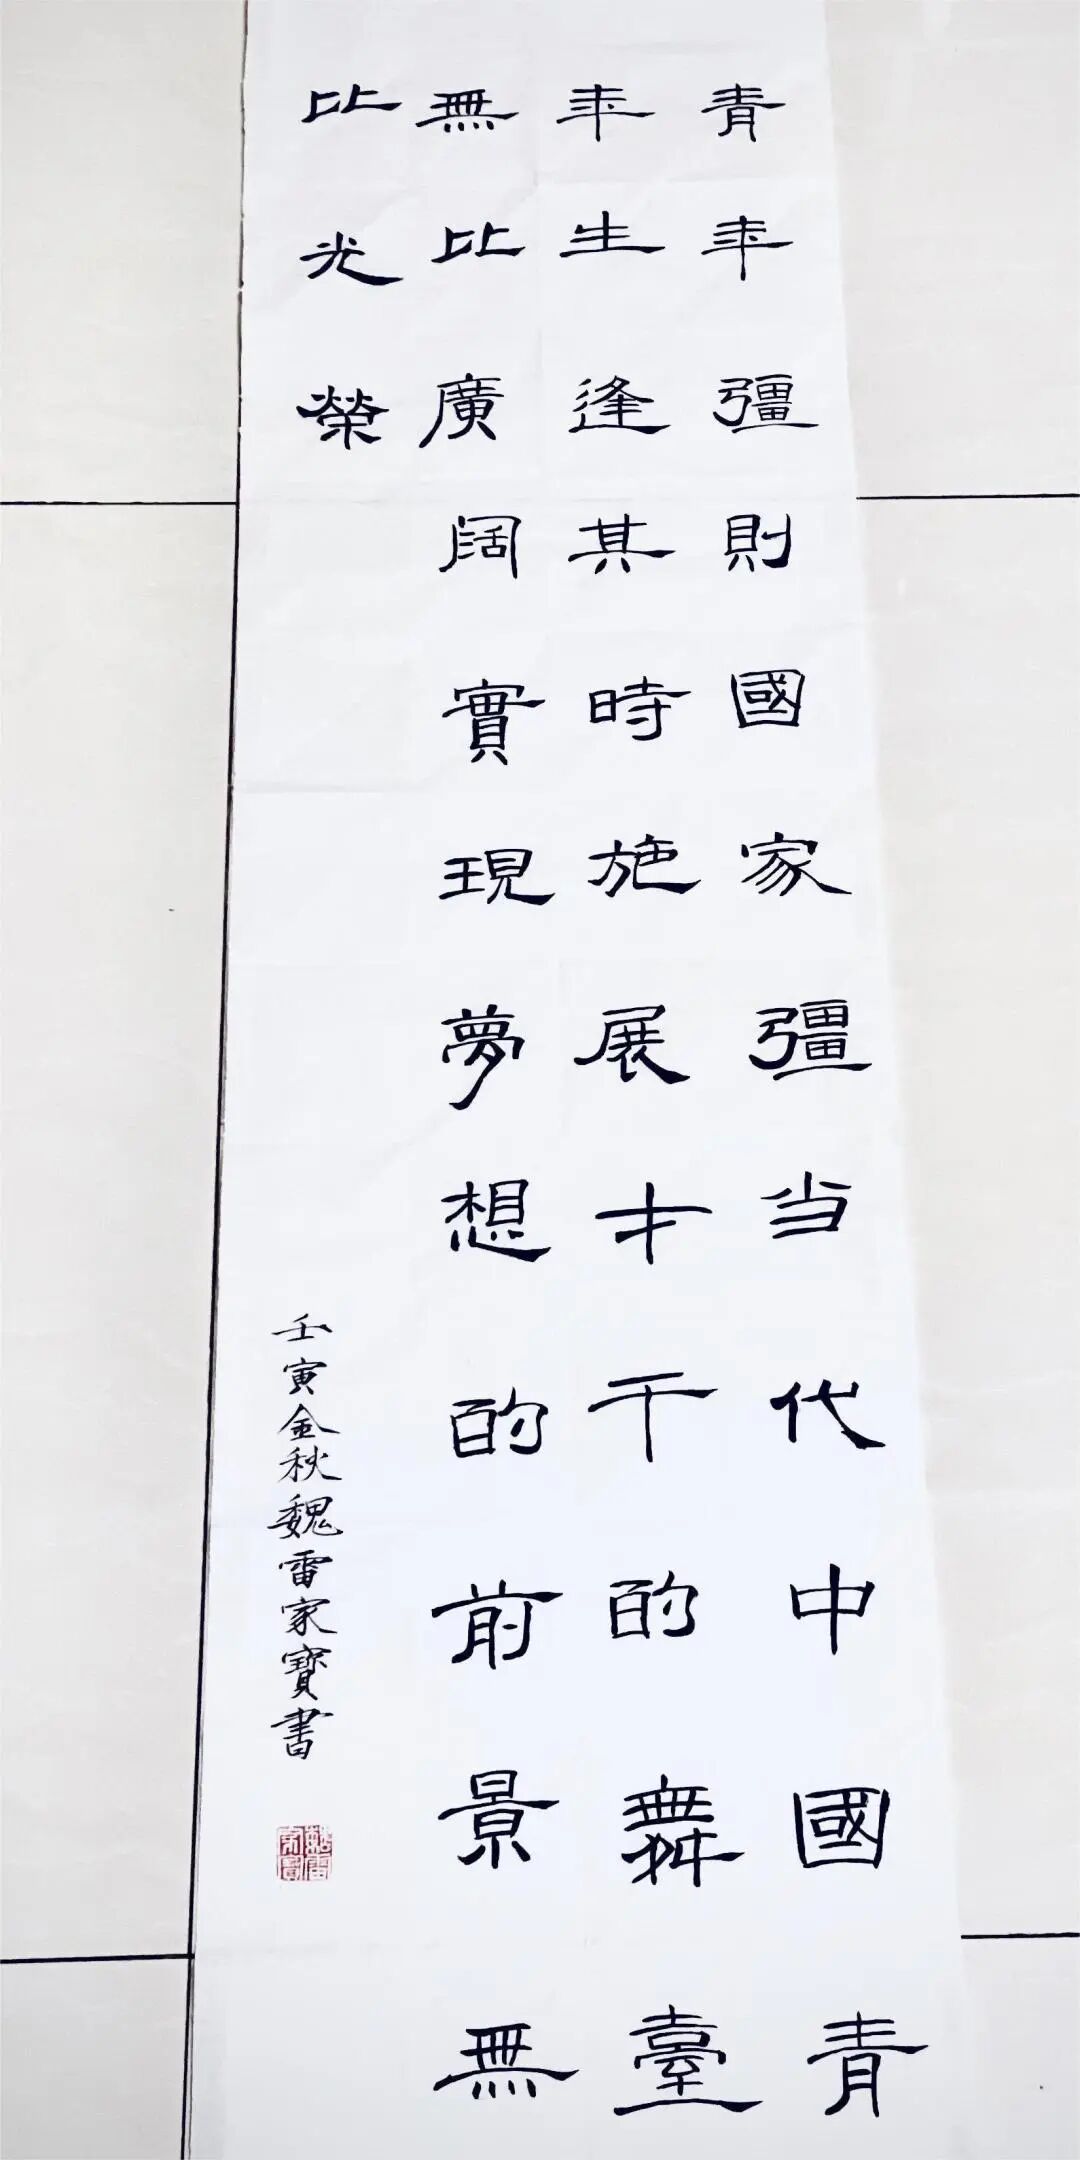 青年彊則國家彊当代中國青
年生逢其時施展才干的舞臺
無比廣阔實現夢想的前景無
比光榮
壬寅金秋魏雷家寶書